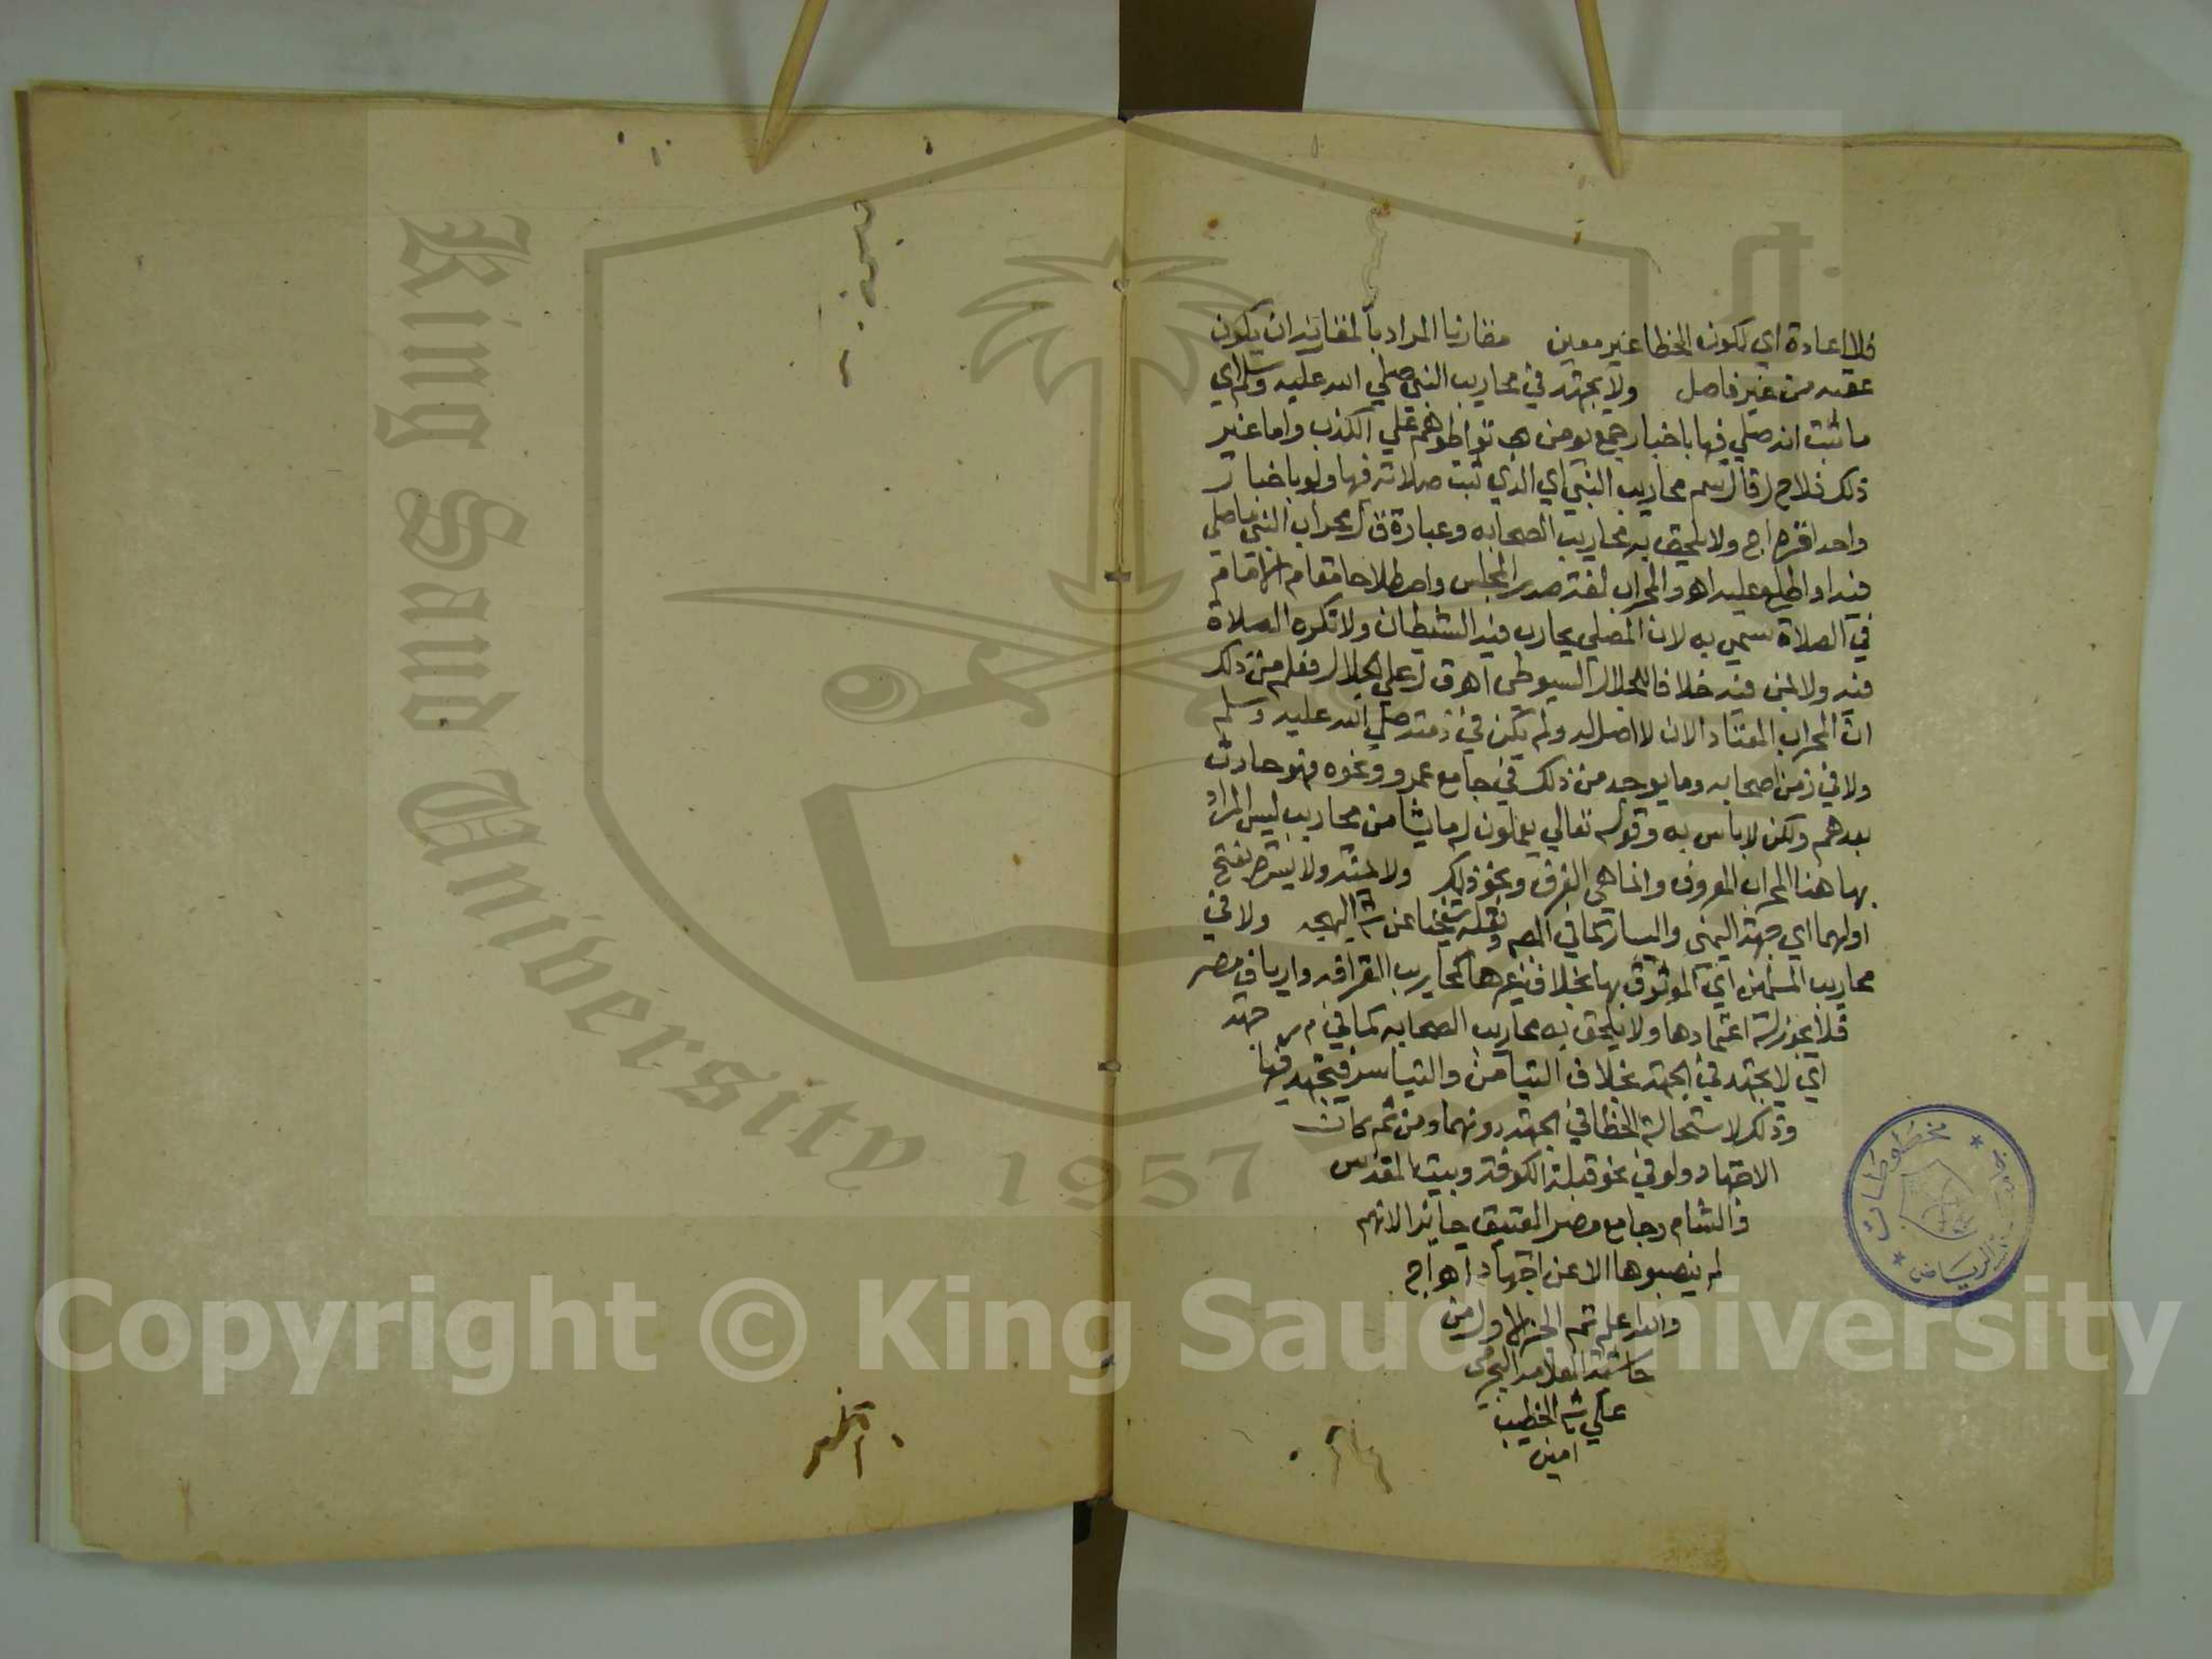 فلا اعادة اي لكون الخطا غير معين مقارنا المراد بالمقارنة ان يكون
عقبه من غير فاصل ولا يجتهد في محاريب النبي صلي الله عليه وسلم اي
ما ثبت انه صلي فيها باخبار جمع يومن تواطوهم علي الكذب واما غير
ذلك فلا م ر قال سم محاريب النبي اي الذي ثبت صلاته فيها ولو باخبار
واحد اج ولا يلحق به محاريب الصحابه وعبارة ق ل محراب النبي ما صلي
فيه او اطلع عليه اهـ والمحراب لغة صدر المجلس واصطلاحا مقام الامام
في الصلاة سمي به لان المصلي يحارب فيه الشيطان ولا تكره الصلاة
فيه ولا لمن فيه خلافا للجلال السيوطي اهـ ق ل علي الجلال فعلم من ذلك
ان المحراب المعتاد الان لا اصل له ولم يكن في زمنه صلي الله عليه وسلم
ولا في زمن اصحابه وما يوجد من ذلك في جامع عمرو ونحوه فهو حادث
بعدهم ولكن لا باس به وقوله تعالي يعملون له ما يشا من محاريب ليس المراد
بها هنا المحراب المعروف وانما هي الغرف ونحو ذلك ولا يمنة ولا يسرة بفتح
اولهما اي جهة اليمني واليسار كما في المص ونقله شيخنا عن ش البهجه ولا في
محاريب المسلمين اي الموثوق بها بخلاف غيرها كمحاريب القرافه وارياف مصر
فلا يجوز له اعتمادها ولا يلحق به محاريب الصحابه كما في م ر جهة
اي لا يجتهد في الجهة بخلاف التيامن والتياسر فيجتهد فيها
وذلك لاستحالة الخطا في الجهة دونهما ومن ثم كان
الاجتهاد ولو في نحو قبلة الكوفة وبيت المقدس
والشام وجامع مصر العتيق جائز الانهم
لم ينصبوها الا عن اجتهاد اهـ اج
والله اعلم تم الجزء الاول من
حاشية العلامه
علي ش الخطيب
امين
مخطوطات
الرياض
King Saud University
1957
Copyright © King Saud University